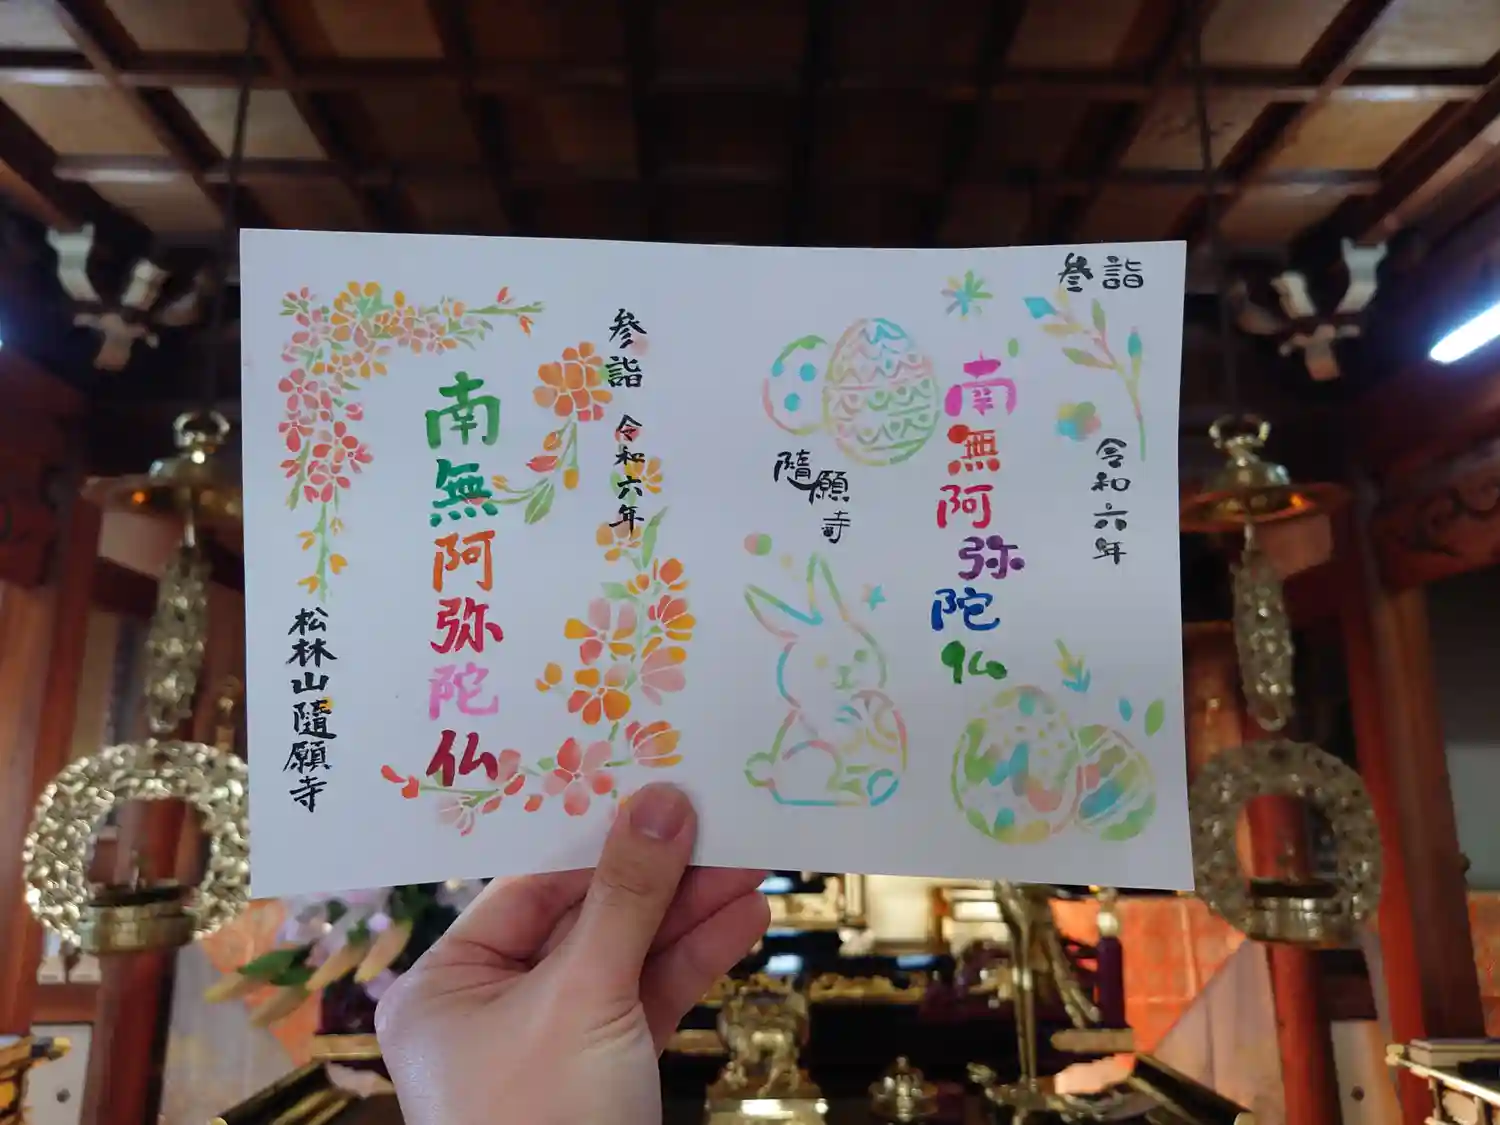 参詣
令和六年
南無阿弥陀仏
随願寺
参詣 令和六年
南無阿弥陀仏
松林山隨願寺